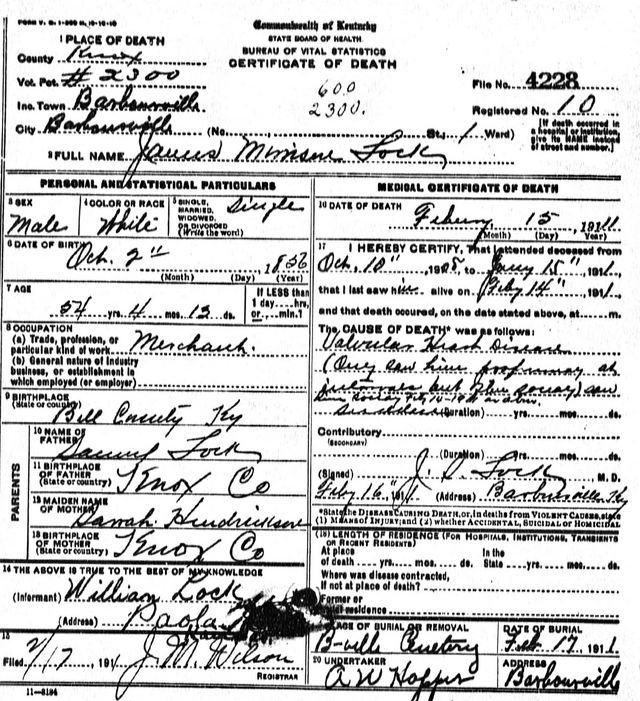 FORM V. S. 1-
Commonwealth of Kentucky
STATE BOARD OF HEALTH.
BUREAU OF VITAL STATISTICS
CERTIFICATE OF DEATH
1 PLACE OF DEATH
County Knox
Vot. Pct. # 2300
Inc. Town Barbourville
City Barbourville (No. St., 1 Ward)
600
2300.
File No. 4228
Registered No. 10
[If death occurred in a hospital or institution, give its NAME instead of street and number.]
2 FULL NAME James Lock
PERSONAL AND STATISTICAL PARTICULARS
3 SEX Male
4 COLOR OR RACE White
5 SINGLE, MARRIED, WIDOWED, OR DIVORCED (Write the word) Single
6 DATE OF BIRTH Oct. 2" 1856
(Month) (Day) (Year)
7 AGE 54 yrs. 4 mos. 13 ds.
If LESS than 1 day...hrs. or...min.?
8 OCCUPATION
(a) Trade, profession, or particular kind of work Merchant.
(b) General nature of industry business, or establishment in which employed (or employer)
9 BIRTHPLACE (State or country) Bell County Ky
PARENTS
10 NAME OF FATHER Lock
11 BIRTHPLACE OF FATHER (State or country) Knox Co
12 MAIDEN NAME OF MOTHER Sarah Hendrickson
13 BIRTHPLACE OF MOTHER (State or country) Knox Co
14 THE ABOVE IS TRUE TO THE BEST OF MY KNOWLEDGE
(Informant) William Lock
(Address) Paola
15
Filed 2/17 191 J. M. Wilson
REGISTRAR
11-3184
MEDICAL CERTIFICATE OF DEATH
16 DATE OF DEATH 15 1911
(Month) (Day) (Year)
17 I HEREBY CERTIFY, That I attended deceased from
Oct. 10" 190 to 15" 1911,
that I last saw him alive on Feby 14" 1911,
and that death occured, on the date stated above, at m.
The CAUSE OF DEATH* was as follows:
Valvular Heart Disease
(Only saw him at
intervals but
(Duration) yrs. mos. ds.
Contributory
(SECONDARY)
(Duration) yrs. mos. ds.
(Signed) J. Lock M. D.
Feby 16" 1911 (Address) Barbourville Ky
*State the DISEASE CAUSING DEATH, or, in deaths from VIOLENT CAUSES, state (1) MEANS OF INJURY; and (2) whether ACCIDENTAL, SUICIDAL or HOMICIDAL
(18) LENGTH OF RESIDENCE (FOR HOSPITALS, INSTITUTIONS, TRANSIENTS OR RECENT RESIDENTS)
At place of death yrs. mos. ds. In the State yrs. mos. ds.
Where was disease contracted, If not at place of death?
Former or usual residence
PLACE OF BURIAL OR REMOVAL B-ville Cemetery
DATE OF BURIAL Feb 17 1911
20 UNDERTAKER A W Hopper
ADDRESS Barbourville